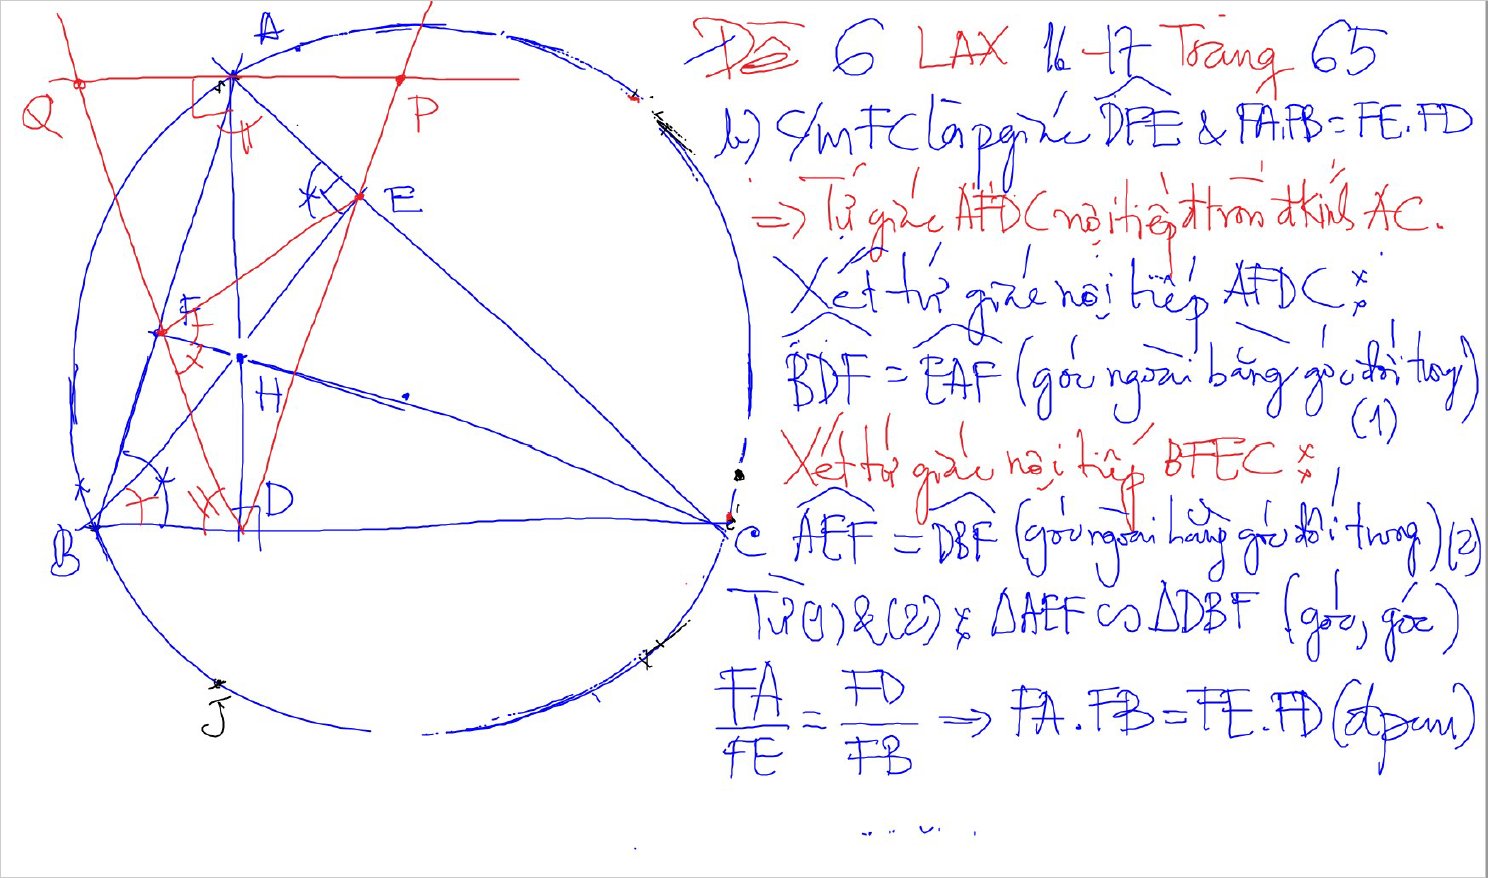 Đề 6 LAX 16-17 Trang 65
b) C/m FC là p/giác DFE & FA.FB = FE.FD
=> Tứ giác AFDC nội tiếp đtròn đkính AC.
Xét tứ giác nội tiếp AFDC:
BDF = EAF (góc ngoài bằng góc đối trong)
(1)
Xét tứ giác nội tiếp BFEC:
AEF = DBF (góc ngoài bằng góc đối trong) (2)
Từ (1) & (2): ΔAEF ∽ ΔDBF (góc, góc)
FA/FE = FD/FB => FA.FB = FE.FD (đpcm)
A
Q
P
E
F
H
D
B
C
J